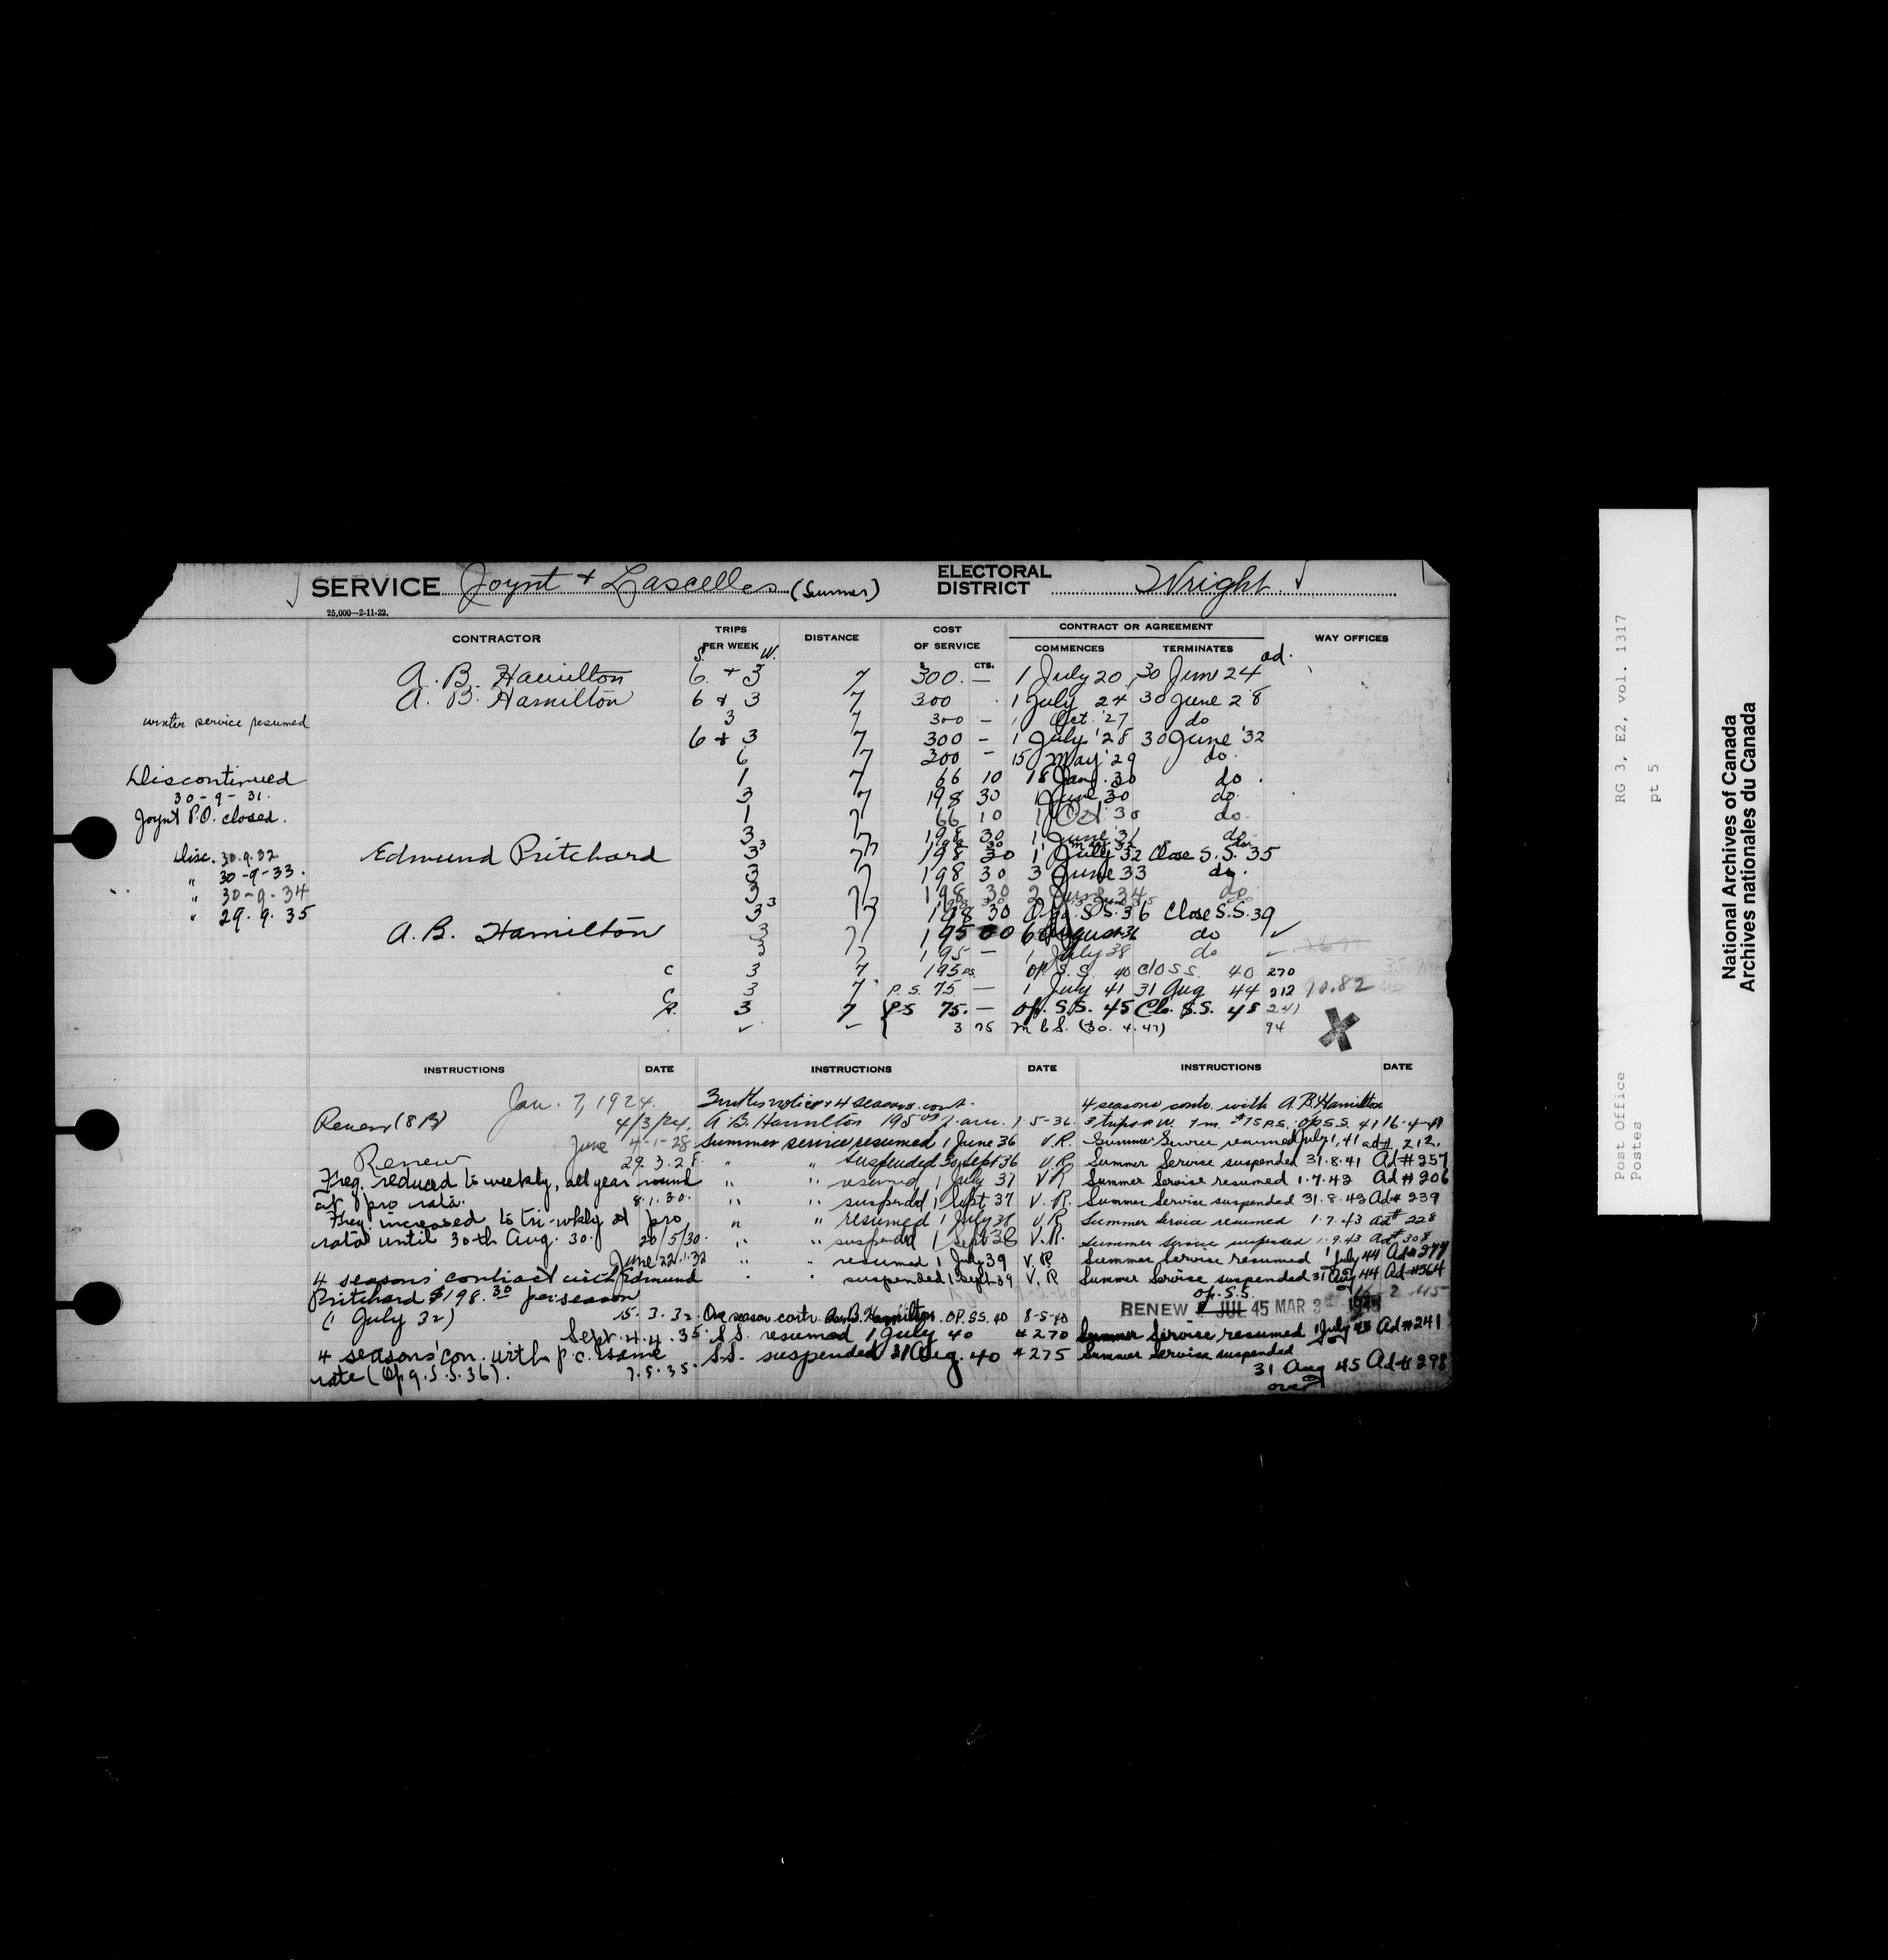 SERVICE Joynt + Lascelles (Summer) ELECTORAL DISTRICT Wright
25,000—2-11-22.
CONTRACTOR TRIPS PER WEEK DISTANCE COST OF SERVICE CONTRACT OR AGREEMENT WAY OFFICES
S. W. $ CTS. COMMENCES TERMINATES ad.
A. B. Hamilton 6 + 3 7 300. — 1 July 20 30 June 24
A. B. Hamilton 6 & 3 7 300 1 July 24 30 June 28
winter service resumed 3 7 300 — 1 Oct. '27 do
6 & 3 7 300 — 1 July '28 30 June '32
6 7 300 — 15 May '29 do.
Discontinued 1 7 66 10 18 Jan. 30 do.
30-9-31. 3 7 198 30 1 June 30 do.
Joynt P.O. closed. 1 7 66 10 1 Oct. 30 do.
3 7 198 30 1 June '31 do.
Disc. 30.9.32 Edmund Pritchard 3 7 198 30 1 July 32 Close S.S. 35
" 30-9-33. 3 7 198 30 3 June 33 do.
" 30-9-34 3 7 198 30 2 June 34 do
" 29.9.35 3 7 198 30 Opg. S.S. 36 Close S.S. 39
A. B. Hamilton 3 7 195 00 6 August 36 do ✓
3 7 195 — 1 July 38 do
c 3 7 195 op. S.S. 40 Clo S.S. 40 270
c 3 7 P.S. 75 — 1 July 41 31 Aug 44 212 90.82
R. 3 7 P.S 75. — Op. S.S. 45 Clo. S.S. 48 241
✓ ✓ 3 75 M.C.S. (30.4.47) 94
X
INSTRUCTIONS DATE INSTRUCTIONS DATE INSTRUCTIONS DATE
Jan. 7, 1924.
Renew (8 B) 4/3/24.
June 4-1-28
Renew 29.3.28.
Freq. reduced to weekly, all year round
at pro rata. 8.1.30.
Freq. increased to tri-wkly at pro
rata until 30th Aug. 30. 20/5/30.
June 22.1.32
4 seasons' contract with Edmund
Pritchard $198.30 per season
(1 July 32) 15.3.32.
Sept. 4.4.35.
4 seasons' con. with p.c. same
rate (Opg. S.S. 36). 7.5.35.
3 mths notice & 4 seasons cont.
A. B. Hamilton 195.00 p. ann. 1-5-36.
Summer service resumed 1 June 36 V.R.
" " suspended 30 Sept 36 V.R.
" " resumed 1 July 37 V.R
" " suspended 1 Sept 37 V.R.
" " resumed 1 July 38 V.R
" " suspended 1 Sept 38 V.R.
" " resumed 1 July 39 V.R.
" " suspended 1 Sept 39 V.R
One season contr. A.B. Hamilton. OP. SS. 40 8-5-40
S.S. resumed 1 July 40 # 270
S.S. suspended 31 Aug. 40 # 275
4 seasons contr. with A. B. Hamilton
3 trips P.W. 7 m. $75 P.S. Op S.S. 41 16-4-41
Summer Service resumed July 1, 41 ad # 212.
Summer Service suspended 31.8.41 Ad # 257
Summer Service resumed 1.7.42 Ad # 206
Summer Service suspended 31.8.42 Ad # 239
Summer Service resumed 1.7.43 ad # 228
Summer Service suspended 1.9.43 Ad # 308
Summer Service resumed 1 July 44 Ad # 277
Summer Service suspended 31 Aug 44 Ad # 364
Op. S.S.
RENEW 1 JUL 45 MAR 3 1945
Summer Service resumed 1 July 45 Ad # 241
Summer Service suspended
31 Aug 45 Ad # 298
over
Post Office
Postes
RG 3, E2, vol. 1317
pt 5
National Archives of Canada
Archives nationales du Canada